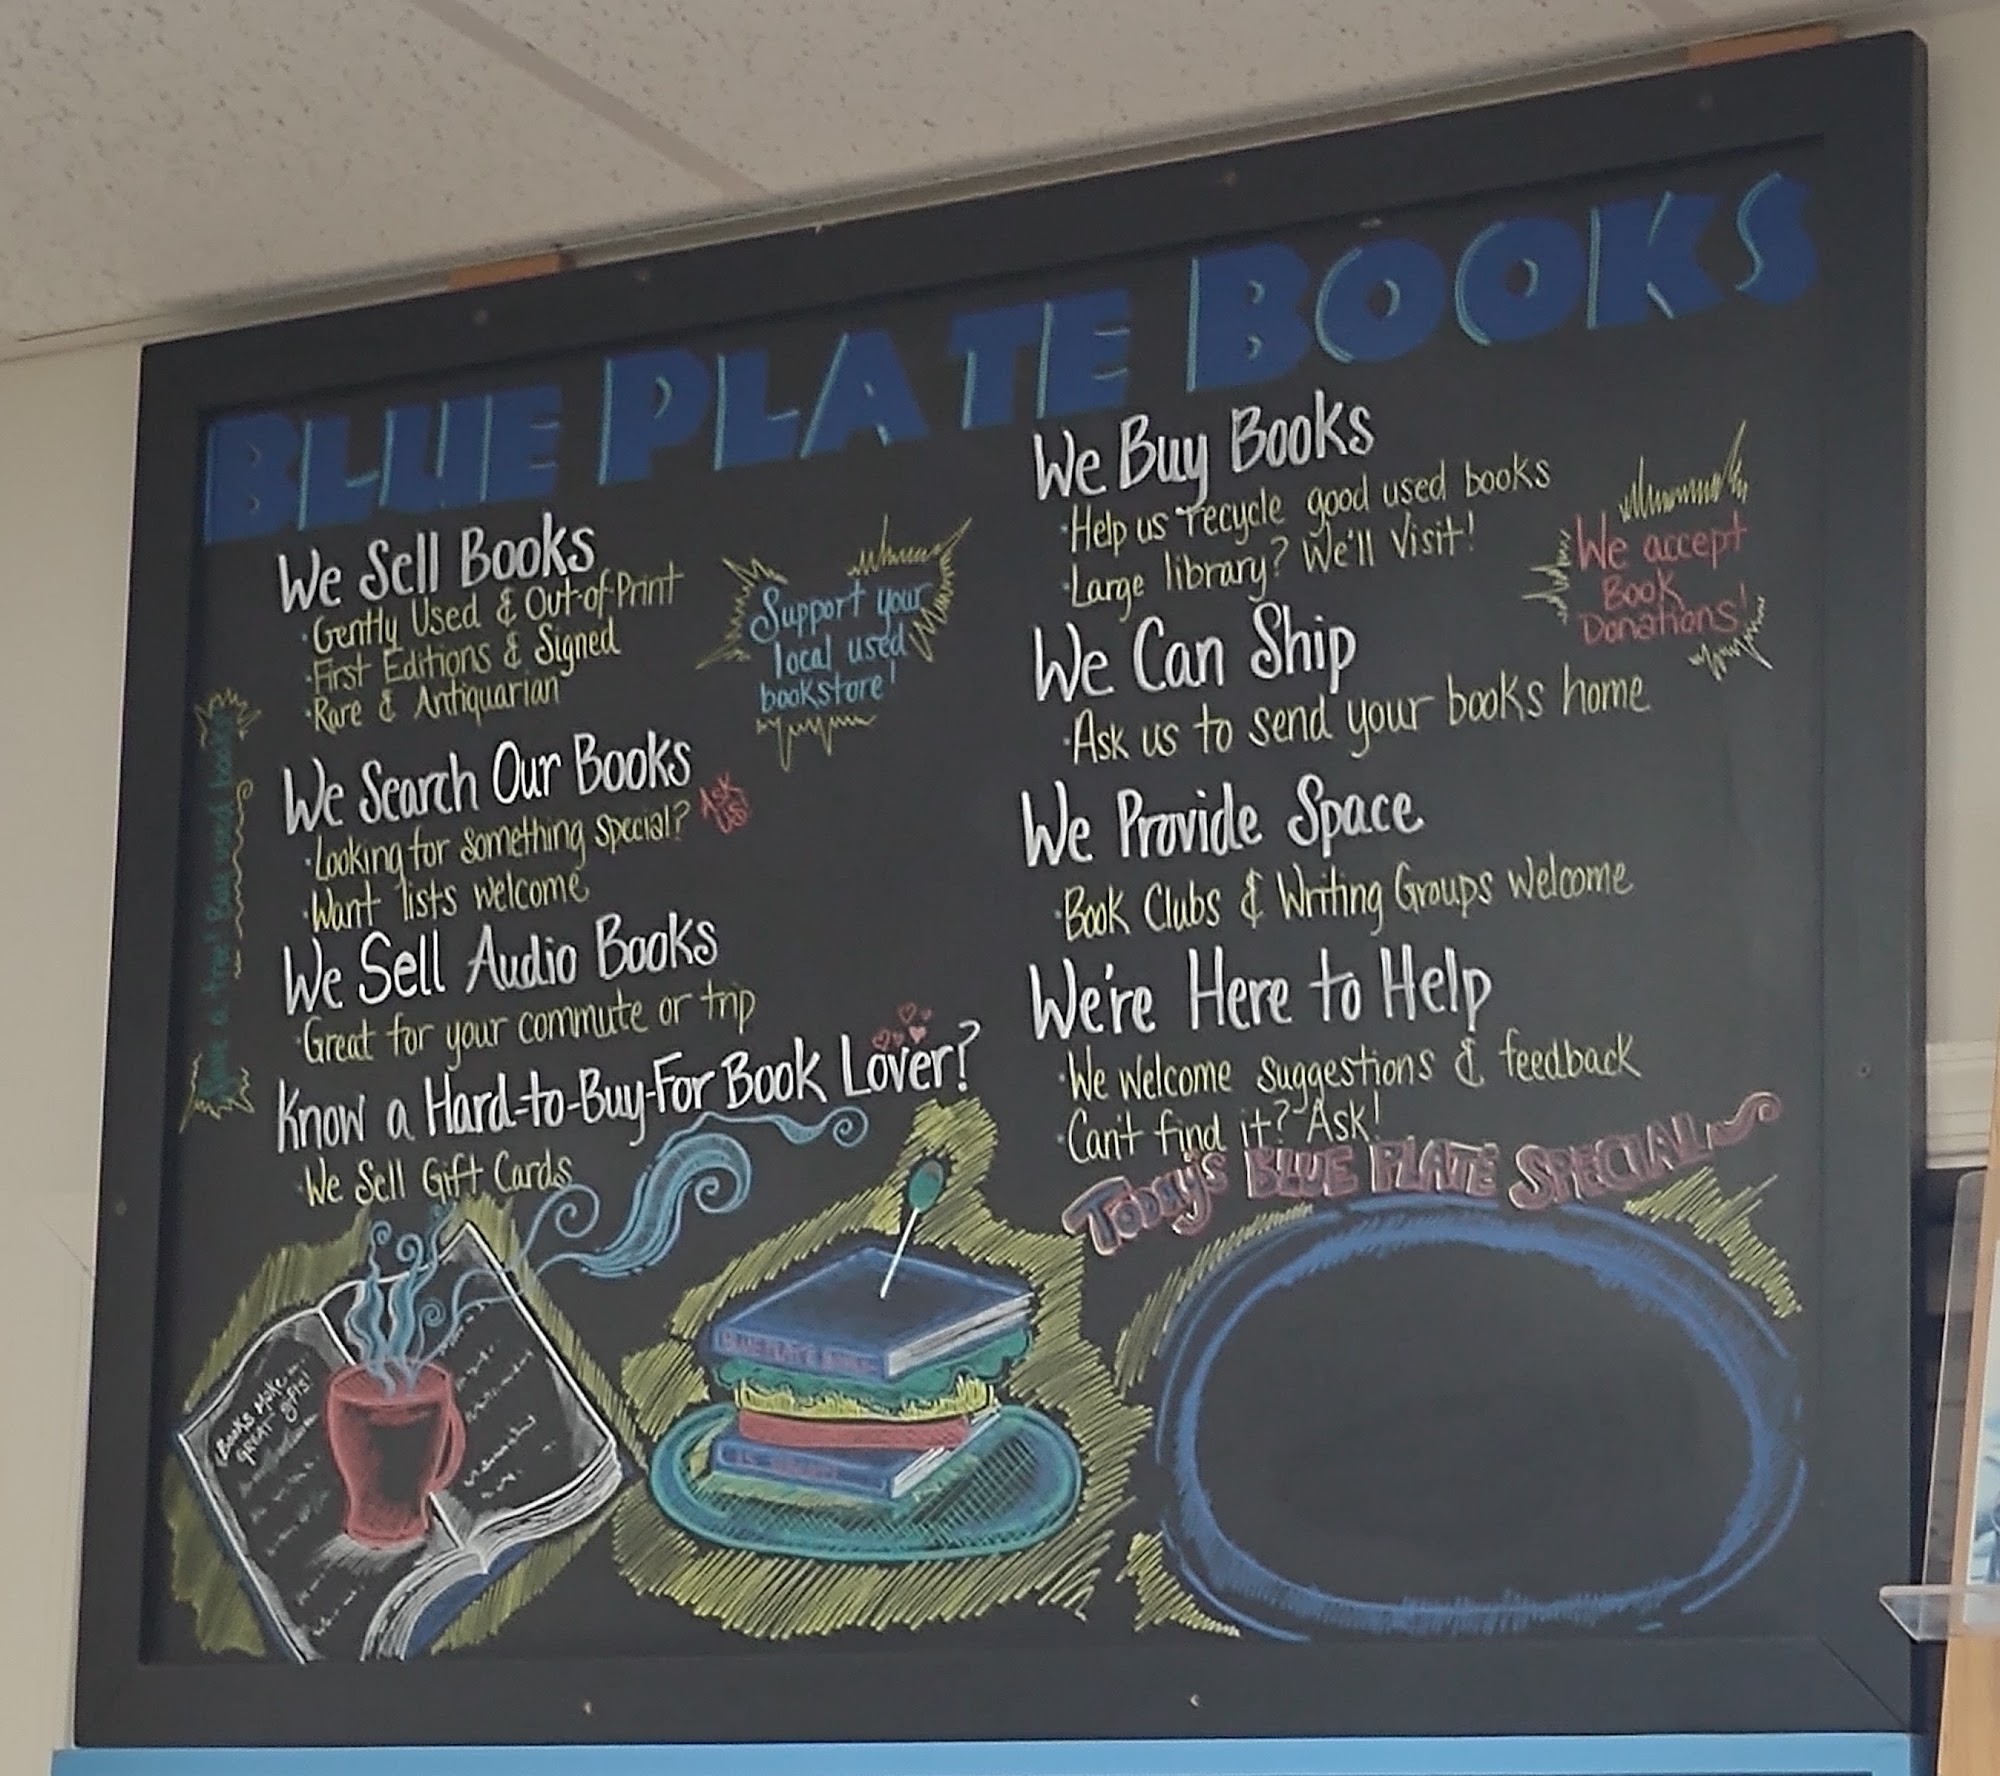 BLUE PLATE BOOKS
We Sell Books
·Gently Used & Out-of-Print
·First Editions & Signed
·Rare & Antiquarian
Support your
local used
bookstore!
We Search Our Books
·Looking for something special?
Ask
us
·Want lists welcome
We Sell Audio Books
·Great for your commute or trip
Know a Hard-to-Buy-For Book Lover?
·We Sell Gift Cards
Save a tree! Buy used books
We Buy Books
·Help us recycle good used books
·Large library? We'll Visit!
We accept
Book
Donations!
We Can Ship
·Ask us to send your books home
We Provide Space
·Book Clubs & Writing Groups Welcome
We're Here to Help
·We Welcome suggestions & feedback
·Can't find it? Ask!
Today's BLUE PLATE SPECIAL
Books Make
GREAT gifts!
BLUE PLATE BOOKS